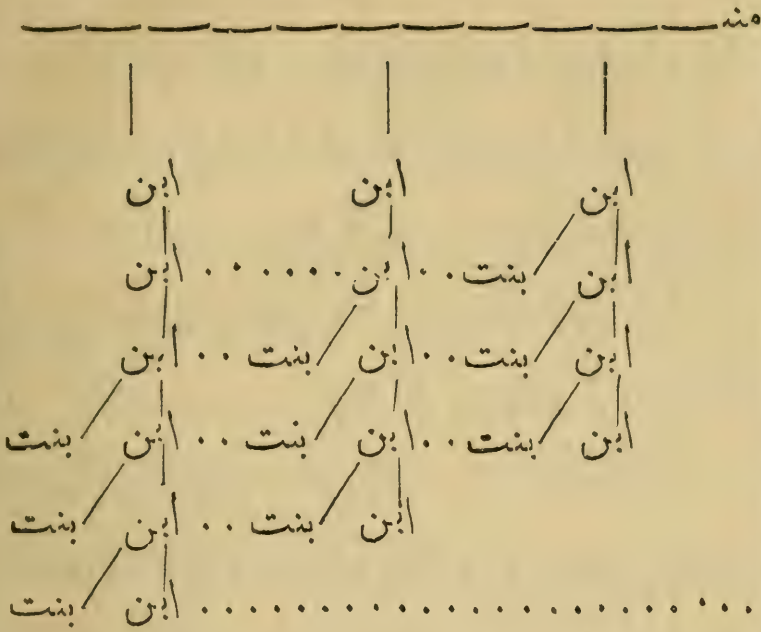 ابن ابن ابن
ابن بنت ابن ابن
ابن بنت ابن بنت ابن
ابن بنت ابن بنت ابن بنت
ابن بنت ابن بنت
ابن بنت